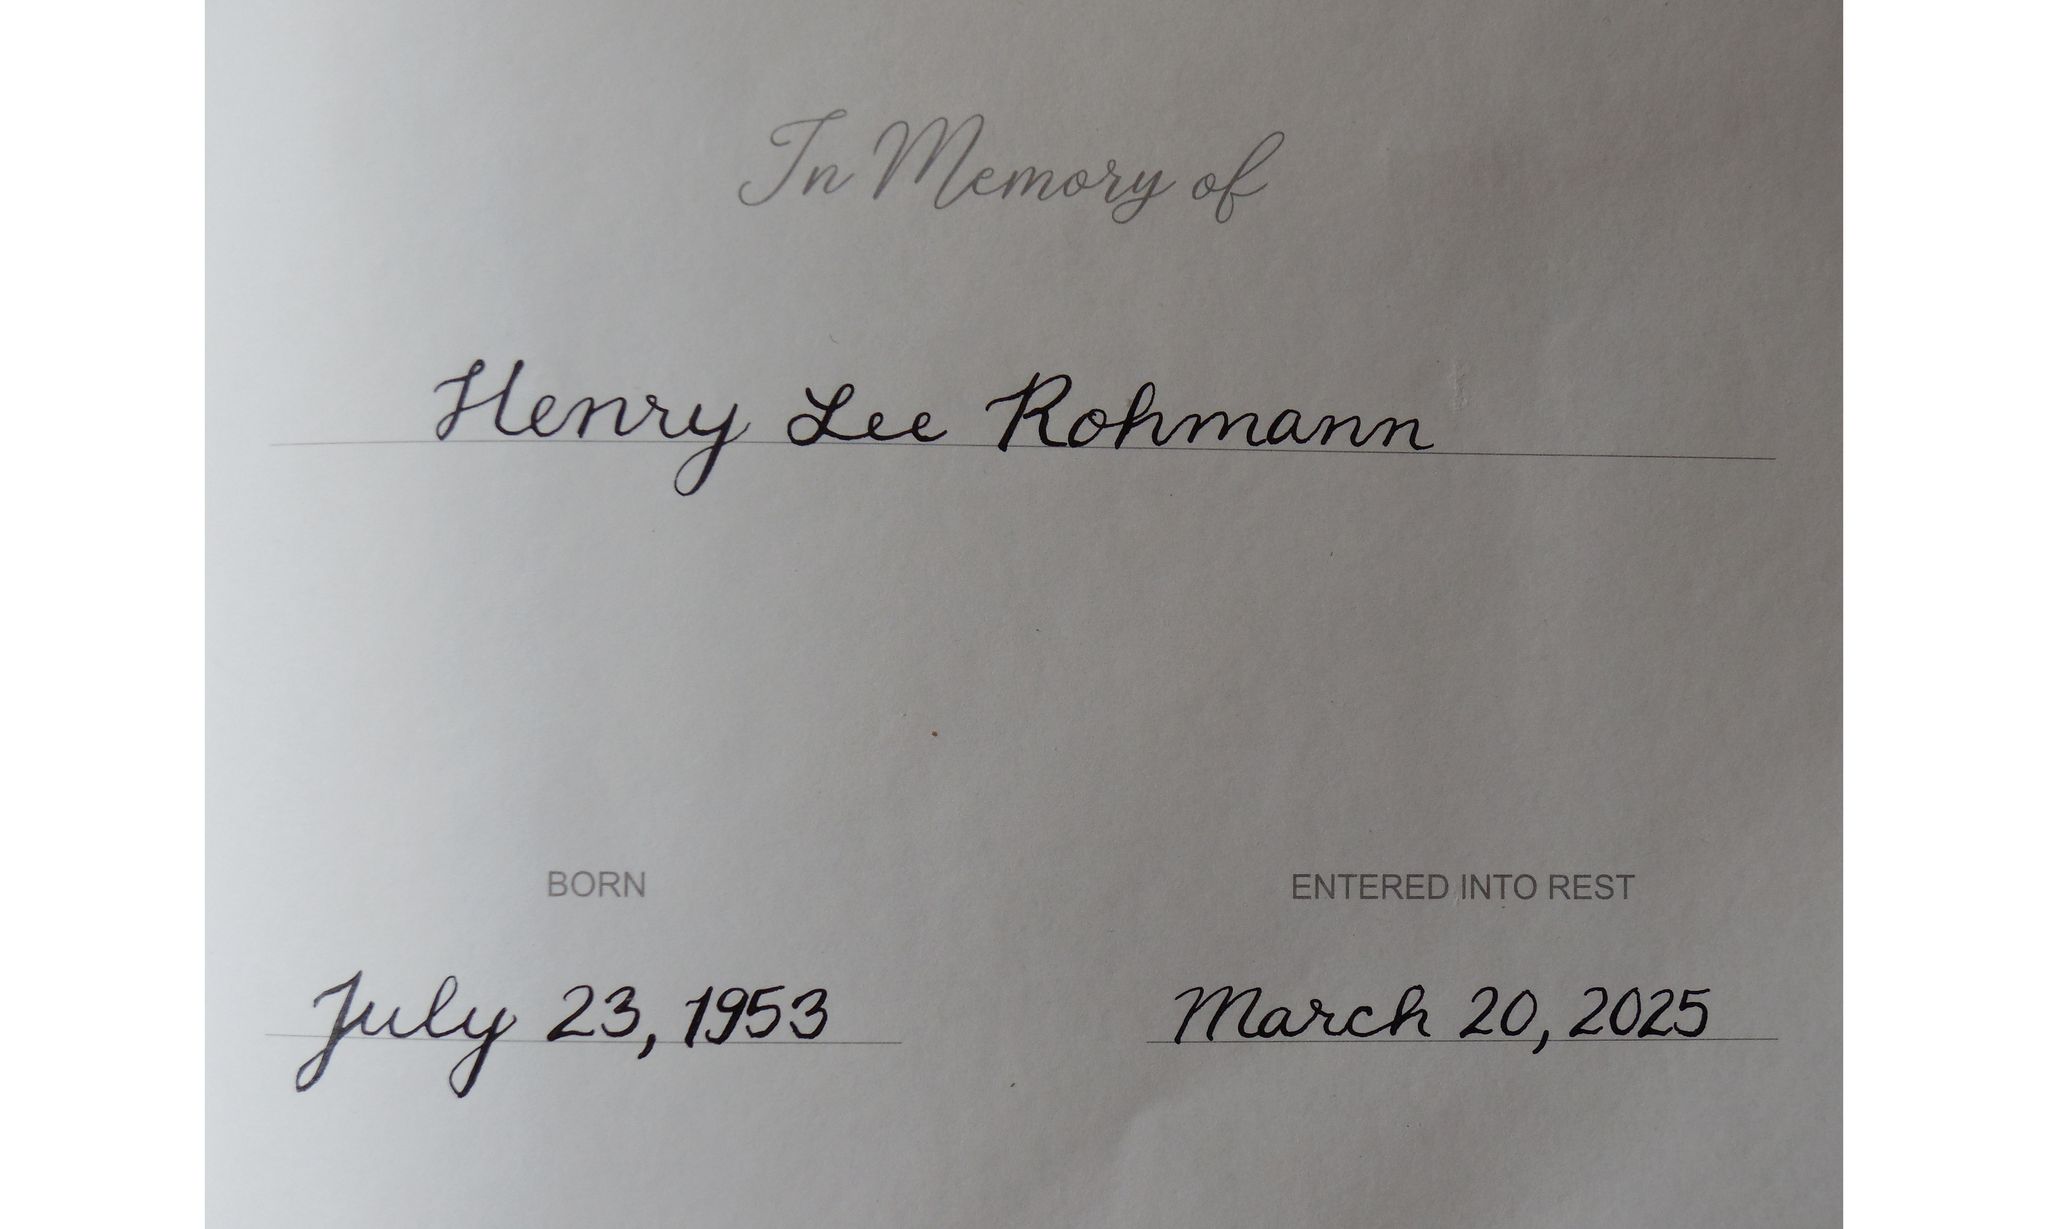 In Memory of
Henry Lee Rohmann
BORN
July 23, 1953
ENTERED INTO REST
March 20, 2025